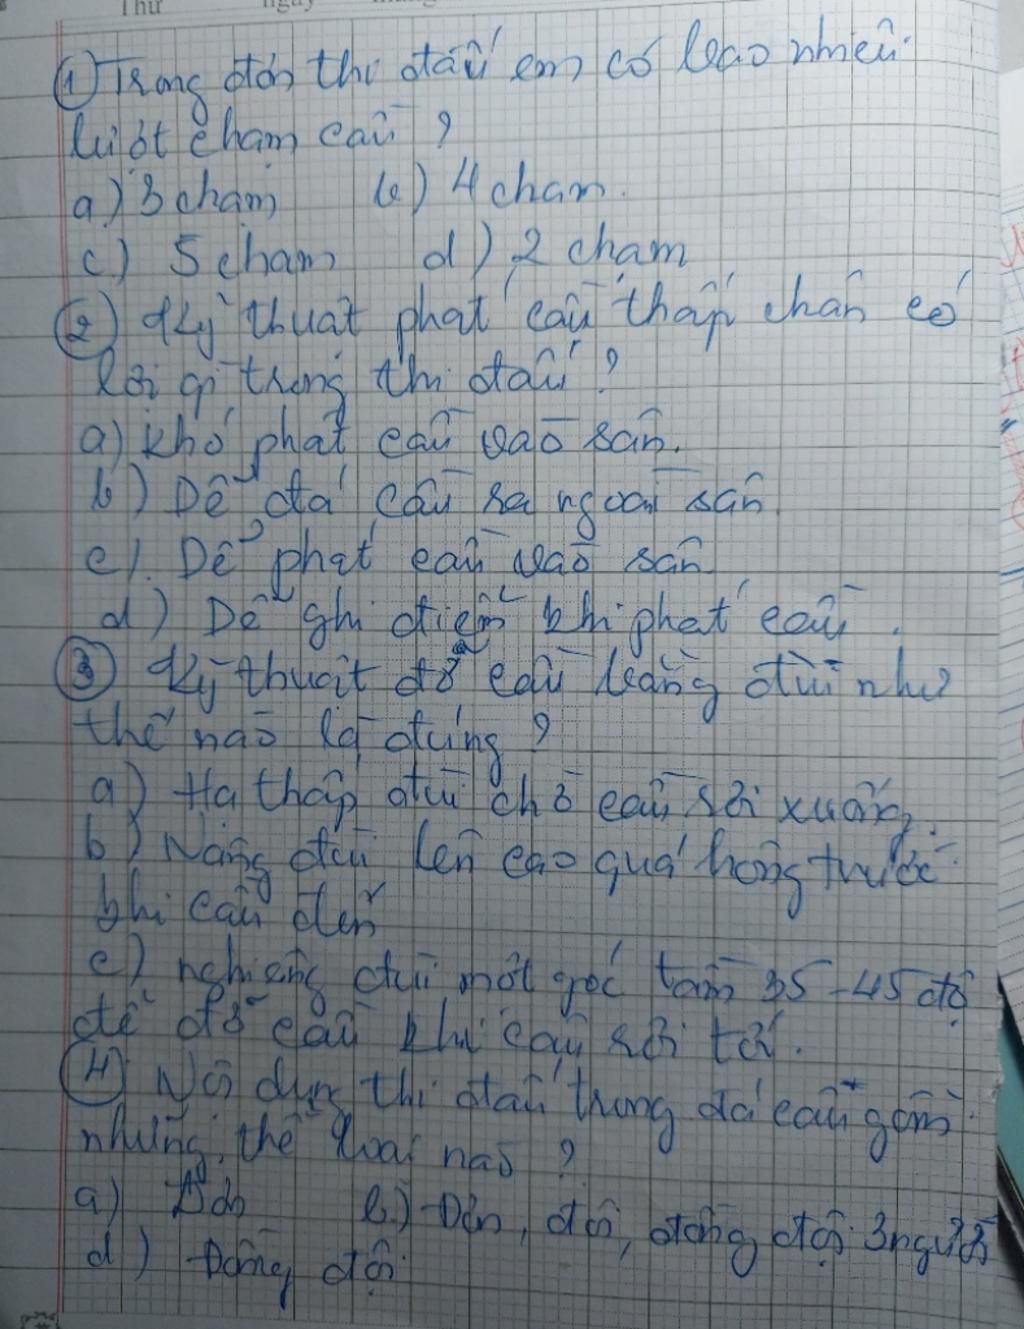 Thứ ngày tháng
① Trong đơn thi đấu em có bao nhiêu
lượt chạm cầu ?
a) 3 chạm b) 4 chạm.
c) 5 chạm d) 2 chạm
② Kỹ thuật phát cầu thấp chân có
lợi gì trong thi đấu ?
a) Khó phát cầu vào sân.
b) Dễ đá cầu ra ngoài sân
c). Dễ phát cầu vào sân
d) Dễ ghi điểm khi phát cầu.
③ Kỹ thuật đỡ cầu bằng đùi như
thế nào là đúng ?
a) Hạ thấp đùi chờ cầu rơi xuống.
b) Nâng đùi lên cao quá hông trước
khi cầu đến
c) nghiêng đùi một góc tầm 35-45 độ
để đỡ cầu khi cầu rơi tới.
④ Nội dung thi đấu trong đá cầu gồm
những thể loại nào ?
a) Đơn b.) Đơn, đôi, đồng đội 3 người
d) Đồng đội